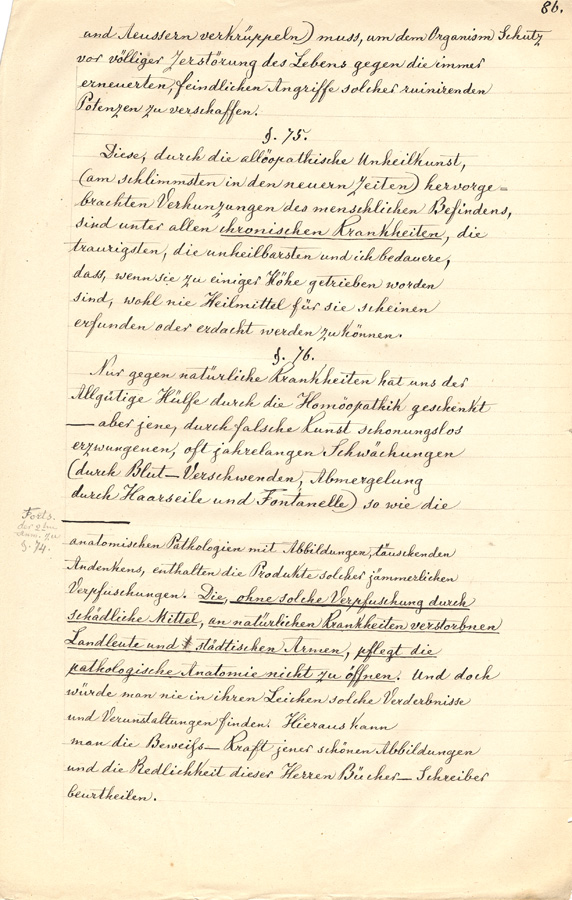 86.
und Aeussern verkrüppeln) muss, um dem Organism Schutz
vor völliger Zerstörung des Lebens gegen die immer
erneuerten, feindlichen Angriffe solcher ruinirenden
Potenzen zu verschaffen.
§. 75.
Diese, durch die allöopathische Unheilkunst,
(am schlimmsten in den neuern Zeiten) hervorge-
brachten Verhunzungen des menschlichen Befindens,
sind unter allen chronischen Krankheiten, die
traurigsten, die unheilbarsten und ich bedauere,
dass, wenn sie zu einiger Höhe getrieben worden
sind, wohl nie Heilmittel für sie scheinen
erfunden oder erdacht werden zu können.
§. 76.
Nur gegen natürliche Krankheiten hat uns der
Allgütige Hülfe durch die Homöopathik geschenkt
— aber jene, durch falsche Kunst schonungslos
erzwungenen, oft jahrelangen Schwächungen
(durch Blut—Verschwenden, Abmergelung
durch Haarseile und Fontanelle) so wie die
Forts.
der 2ten
Anm. zu
§. 74.
anatomischen Pathologien mit Abbildungen, täuschenden
Andenkens, enthalten die Produkte solcher jämmerlichen
Verpfuschungen. Die, ohne solche Verpfuschung durch
schädliche Mittel, an natürlichen Krankheiten verstorbnen
Landleute und städtischen Armen, pflegt die
pathologische Anatomie nicht zu öffnen. Und doch
würde man nie in ihren Leichen solche Verderbnisse
und Verunstaltungen finden. Hieraus kann
man die Beweifs—Kraft jener schönen Abbildungen
und die Redlichkeit dieser Herren Bücher—Schreiber
beurtheilen.